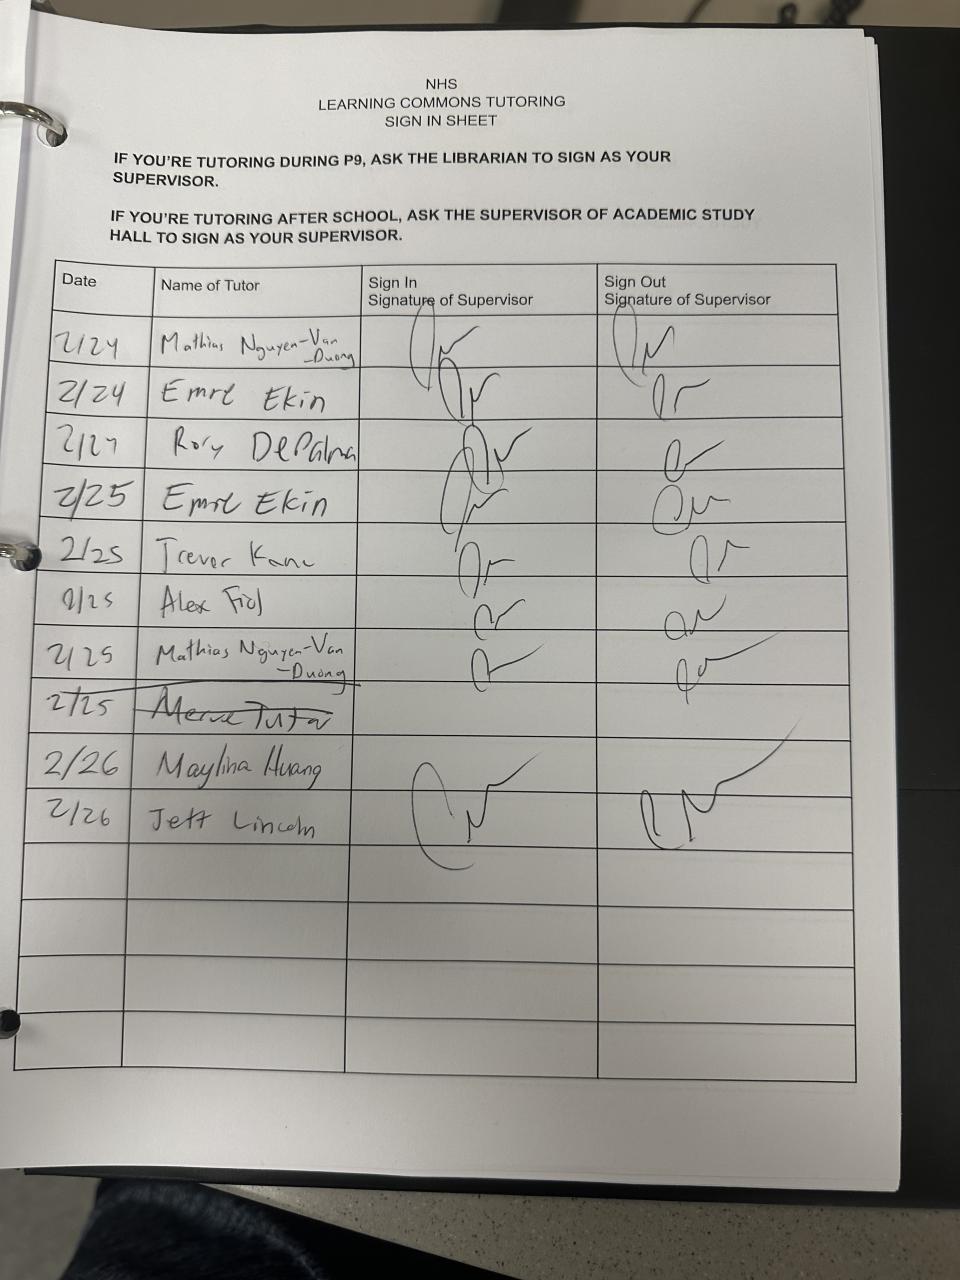 NHS
LEARNING COMMONS TUTORING
SIGN IN SHEET
IF YOU'RE TUTORING DURING P9, ASK THE LIBRARIAN TO SIGN AS YOUR
SUPERVISOR.
IF YOU'RE TUTORING AFTER SCHOOL, ASK THE SUPERVISOR OF ACADEMIC STUDY
HALL TO SIGN AS YOUR SUPERVISOR.
Date Name of Tutor Sign In Sign Out
Signature of Supervisor Signature of Supervisor
2/24 Mathias Nguyen-Van
-Duong
2/24 Emre Ekin
Rory DePalma
2/25 Emre Ekin
2/25 Trevor Kane
2/25 Alex
2/25 Mathias Nguyen-Van
-Duong
2/25 Merve Tutar
2/26 Maylina Huang
2/26 Jett Lincoln